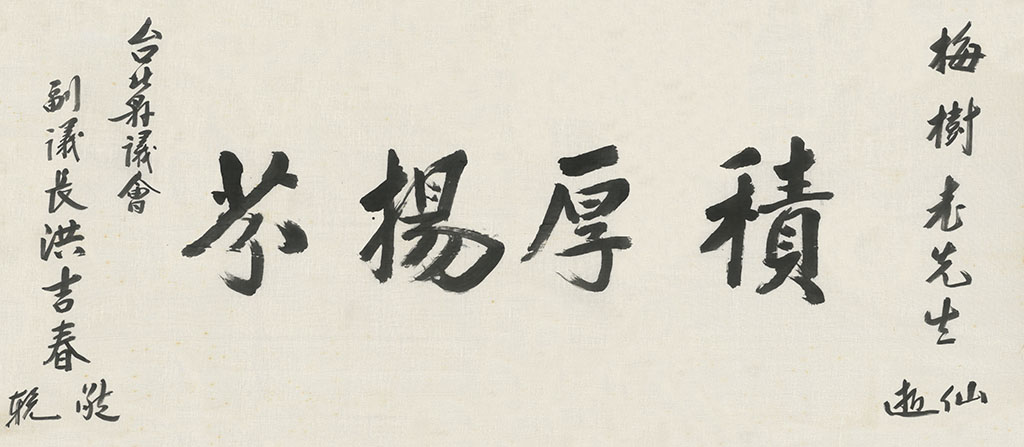 梅樹老先生仙逝
積厚揚芬
台北縣議會
副議長洪吉春敬輓